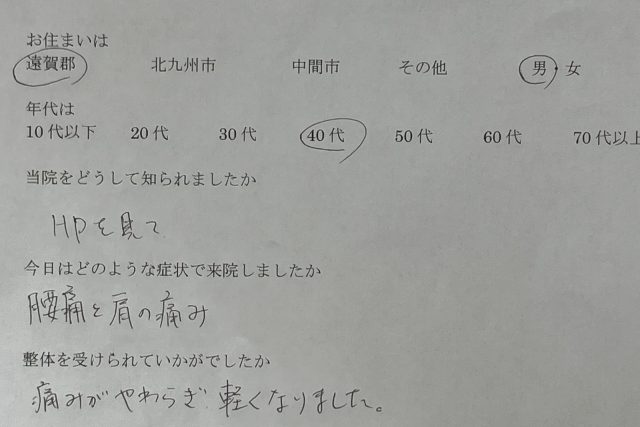 お住まいは
遠賀郡 北九州市 中間市 その他 男・女
年代は
10代以下 20代 30代 40代 50代 60代 70代以上
当院をどうして知られましたか
HPを見て
今日はどのような症状で来院しましたか
腰痛と肩の痛み
整体を受けられていかがでしたか
痛みがやわらぎ軽くなりました。